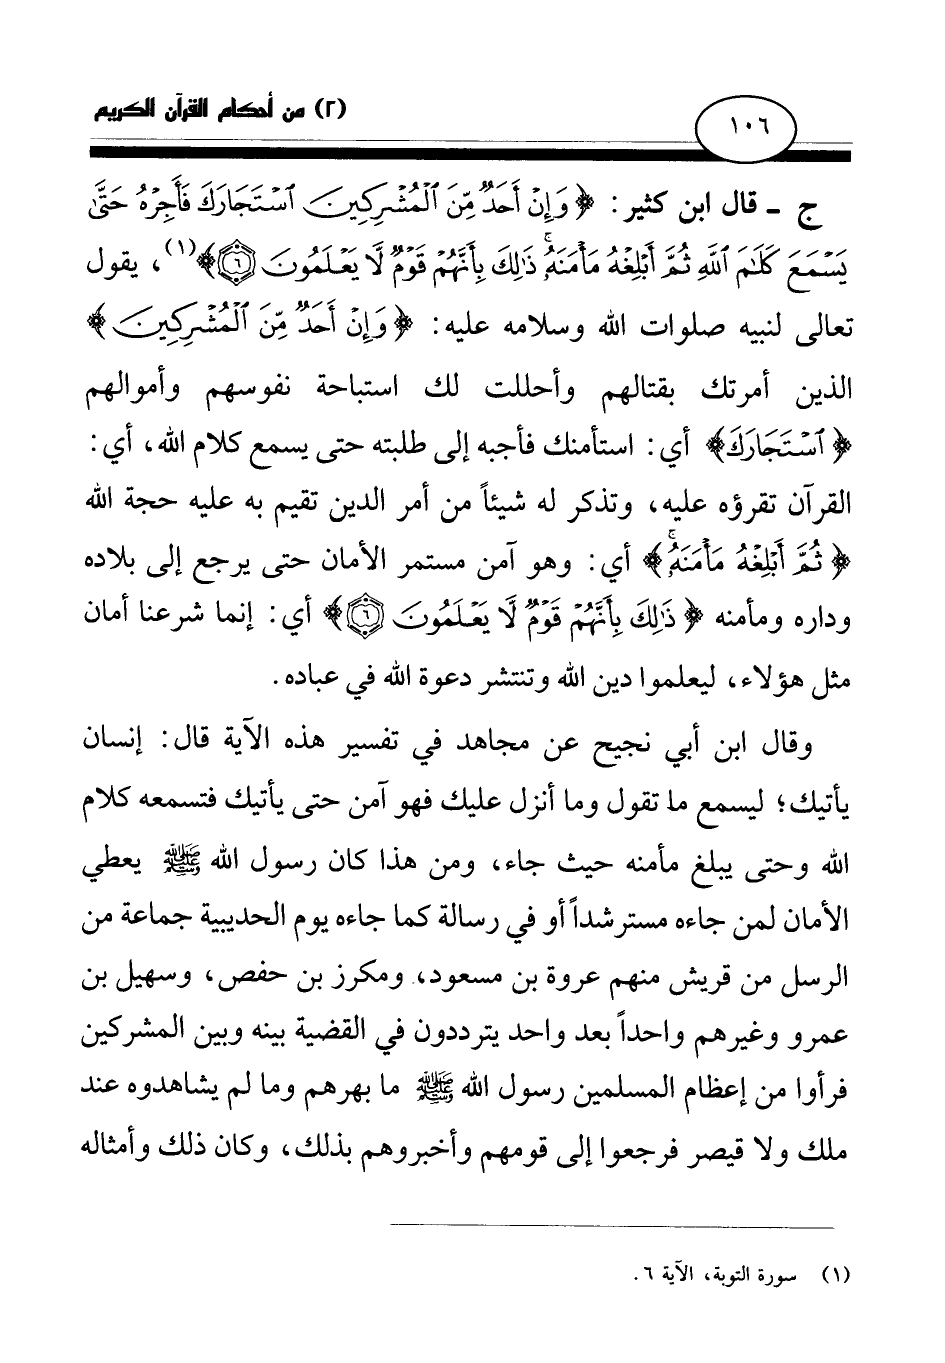 (٢) من أحكام القرآن الكريم
١٠٦
ج - قال ابن كثير: ﴿وَإِنْ أَحَدٌ مِّنَ ٱلْمُشْرِكِينَ ٱسْتَجَارَكَ فَأَجِرْهُ حَتَّىٰ
يَسْمَعَ كَلَٰمَ ٱللَّهِ ثُمَّ أَبْلِغْهُ مَأْمَنَهُۥ ۚ ذَٰلِكَ بِأَنَّهُمْ قَوْمٌ لَّا يَعْلَمُونَ ٦﴾(١)، يقول
تعالى لنبيه صلوات الله وسلامه عليه: ﴿وَإِنْ أَحَدٌ مِّنَ ٱلْمُشْرِكِينَ﴾
الذين أمرتك بقتالهم وأحللت لك استباحة نفوسهم وأموالهم
﴿ٱسْتَجَارَكَ﴾ أي: استأمنك فأجبه إلى طلبته حتى يسمع كلام الله، أي:
القرآن تقرؤه عليه، وتذكر له شيئاً من أمر الدين تقيم به عليه حجة الله
﴿ثُمَّ أَبْلِغْهُ مَأْمَنَهُۥ ۚ﴾ أي: وهو آمن مستمر الأمان حتى يرجع إلى بلاده
وداره ومأمنه ﴿ذَٰلِكَ بِأَنَّهُمْ قَوْمٌ لَّا يَعْلَمُونَ ٦﴾ أي: إنما شرعنا أمان
مثل هؤلاء، ليعلموا دين الله وتنتشر دعوة الله في عباده.
وقال ابن أبي نجيح عن مجاهد في تفسير هذه الآية قال: إنسان
يأتيك؛ ليسمع ما تقول وما أنزل عليك فهو آمن حتى يأتيك فتسمعه كلام
الله وحتى يبلغ مأمنه حيث جاء، ومن هذا كان رسول الله ﷺ يعطي
الأمان لمن جاءه مسترشداً أو في رسالة كما جاءه يوم الحديبية جماعة من
الرسل من قريش منهم عروة بن مسعود، ومكرز بن حفص، وسهيل بن
عمرو وغيرهم واحداً بعد واحد يترددون في القضية بينه وبين المشركين
فرأوا من إعظام المسلمين رسول الله ﷺ ما بهرهم وما لم يشاهدوه عند
ملك ولا قيصر فرجعوا إلى قومهم وأخبروهم بذلك، وكان ذلك وأمثاله
(١) سورة التوبة، الآية ٦.